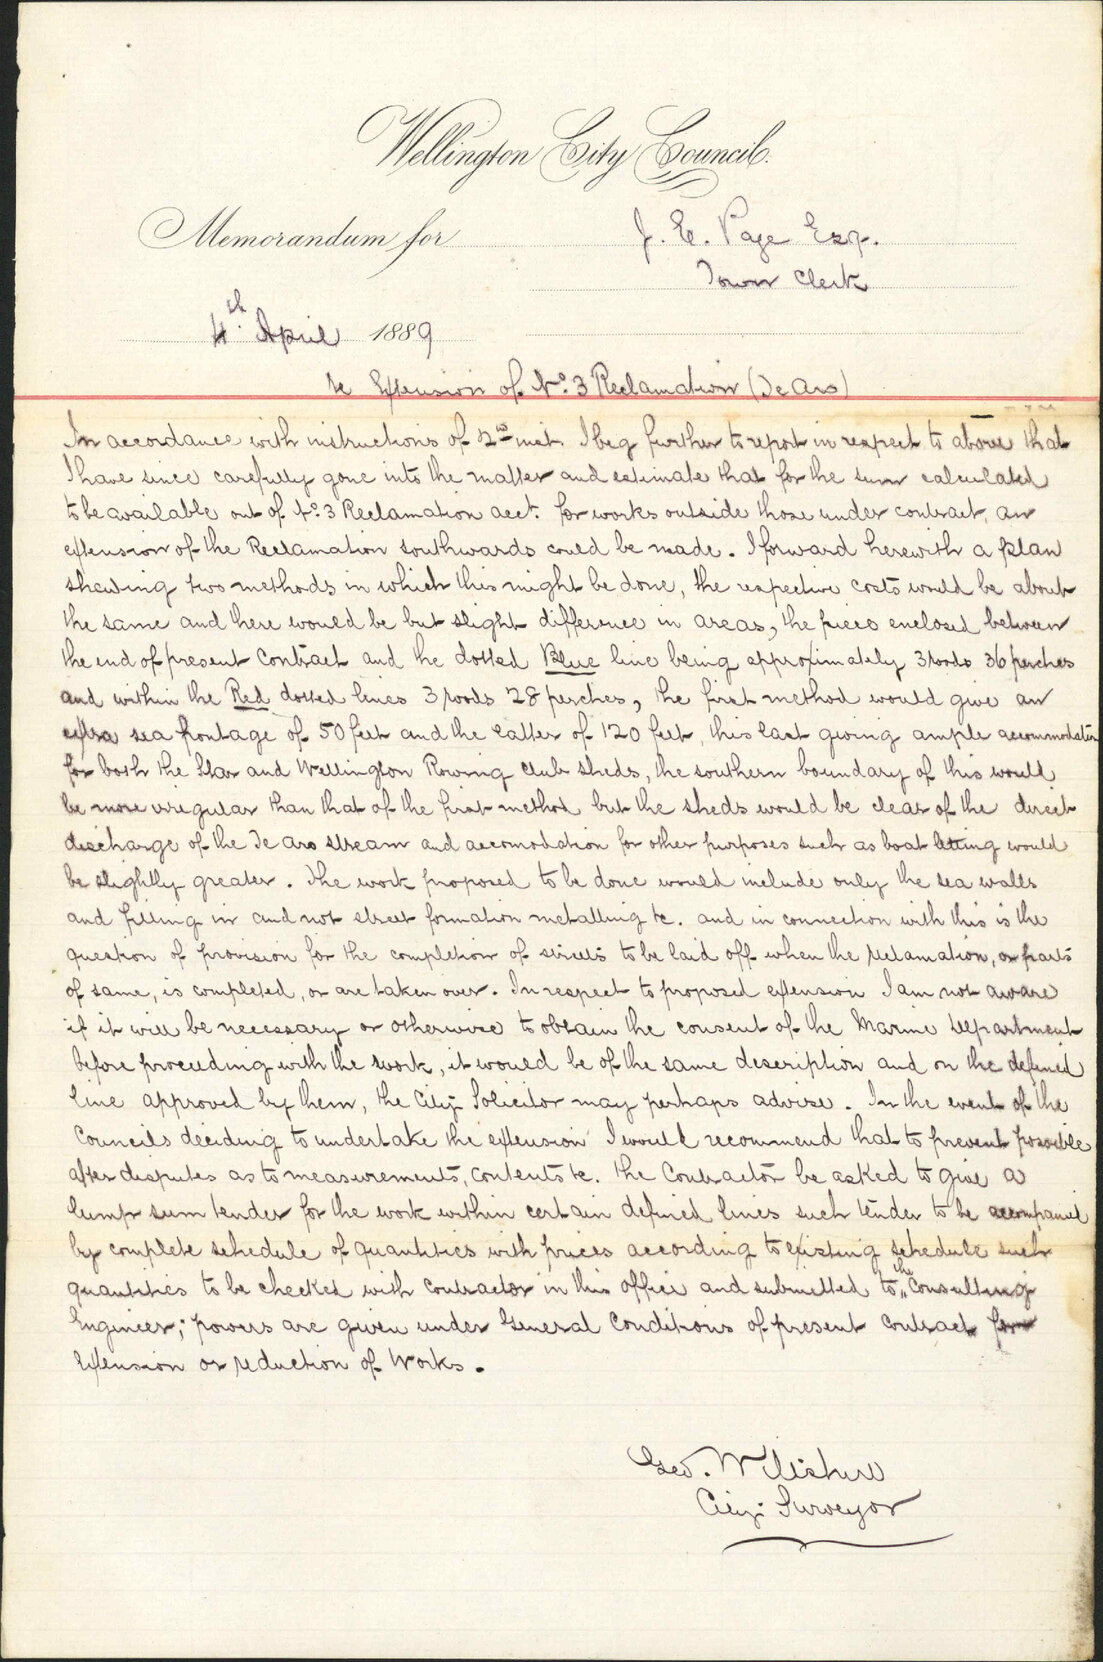 Wellington City Council.
Memorandum for J. E. Page Esq.
Town Clerk
4th April 1889
re Extension of No. 3 Reclamation (Te Aro)
In accordance with instructions of 2nd inst. I beg further to report in respect to above that
I have since carefully gone into the matter and estimate that for the sum calculated
to be available out of No. 3 Reclamation acct. for works outside those under contract, an
extension of the Reclamation southwards could be made. I forward herewith a plan
shewing two methods in which this might be done, the respective costs would be about
the same and there would be but slight difference in areas, the piece enclosed between
the end of present Contract and the dotted Blue line being approximately 3 roods 36 perches
and within the Red dotted lines 3 roods 28 perches, the first method would give an
extra sea frontage of 50 feet and the latter of 120 feet, this last giving ample accommodation
for both the Star and Wellington Rowing Club sheds, the southern boundary of this would
be more irregular than that of the first method but the sheds would be clear of the direct
discharge of the Te Aro stream and accomodation for other purposes such as boat letting would
be slightly greater. The work proposed to be done would include only the sea walls
and filling in and not street formation metalling &c. and in connection with this is the
question of provision for the completion of streets to be laid off when the reclamation, or parts
of same, is completed, or are taken over. In respect to proposed extension I am not aware
if it will be necessary or otherwise to obtain the consent of the Marine Department
before proceeding with the work, it would be of the same description and on the defined
line approved by them, the City Solicitor may perhaps advise. In the event of the
Councils deciding to undertake the extension I would recommend that to prevent possible
after disputes as to measurements, contents &c. the Contractor be asked to give a
lump sum tender for the work within certain defined lines such tender to be accompanied
by complete schedule of quantities with prices according to existing schedule such
quantities to be checked with contractor in this office and submitted to the Consulting
Engineer; powers are given under General Conditions of present contract for
extension or reduction of Works.
Geo. Wiltshire
City Surveyor